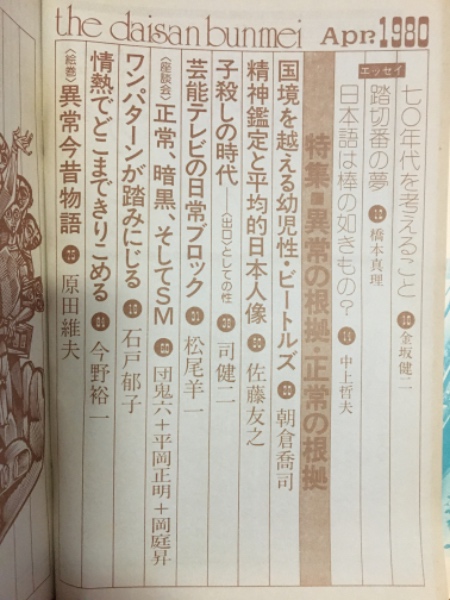 the daisan bunmei Apr. 1980
エッセイ
七〇年代を考えること 金坂健二
踏切番の夢 橋本真理
日本語は棒の如きもの? 中上哲夫
特集■異常の根拠・正常の根拠
国境を越える幼児性・ビートルズ 朝倉喬司
精神鑑定と平均的日本人像 佐藤友之
子殺しの時代――〈出口〉としての性 司健二
芸能テレビの日常ブロック 松尾羊一
〈座談会〉正常、暗黒、そしてSM 団鬼六+平岡正明+岡庭昇
ワンパターンが踏みにじる 石戸郁子
情熱でどこまできりこめる 今野裕一
〈絵巻〉異常今昔物語 原田維夫